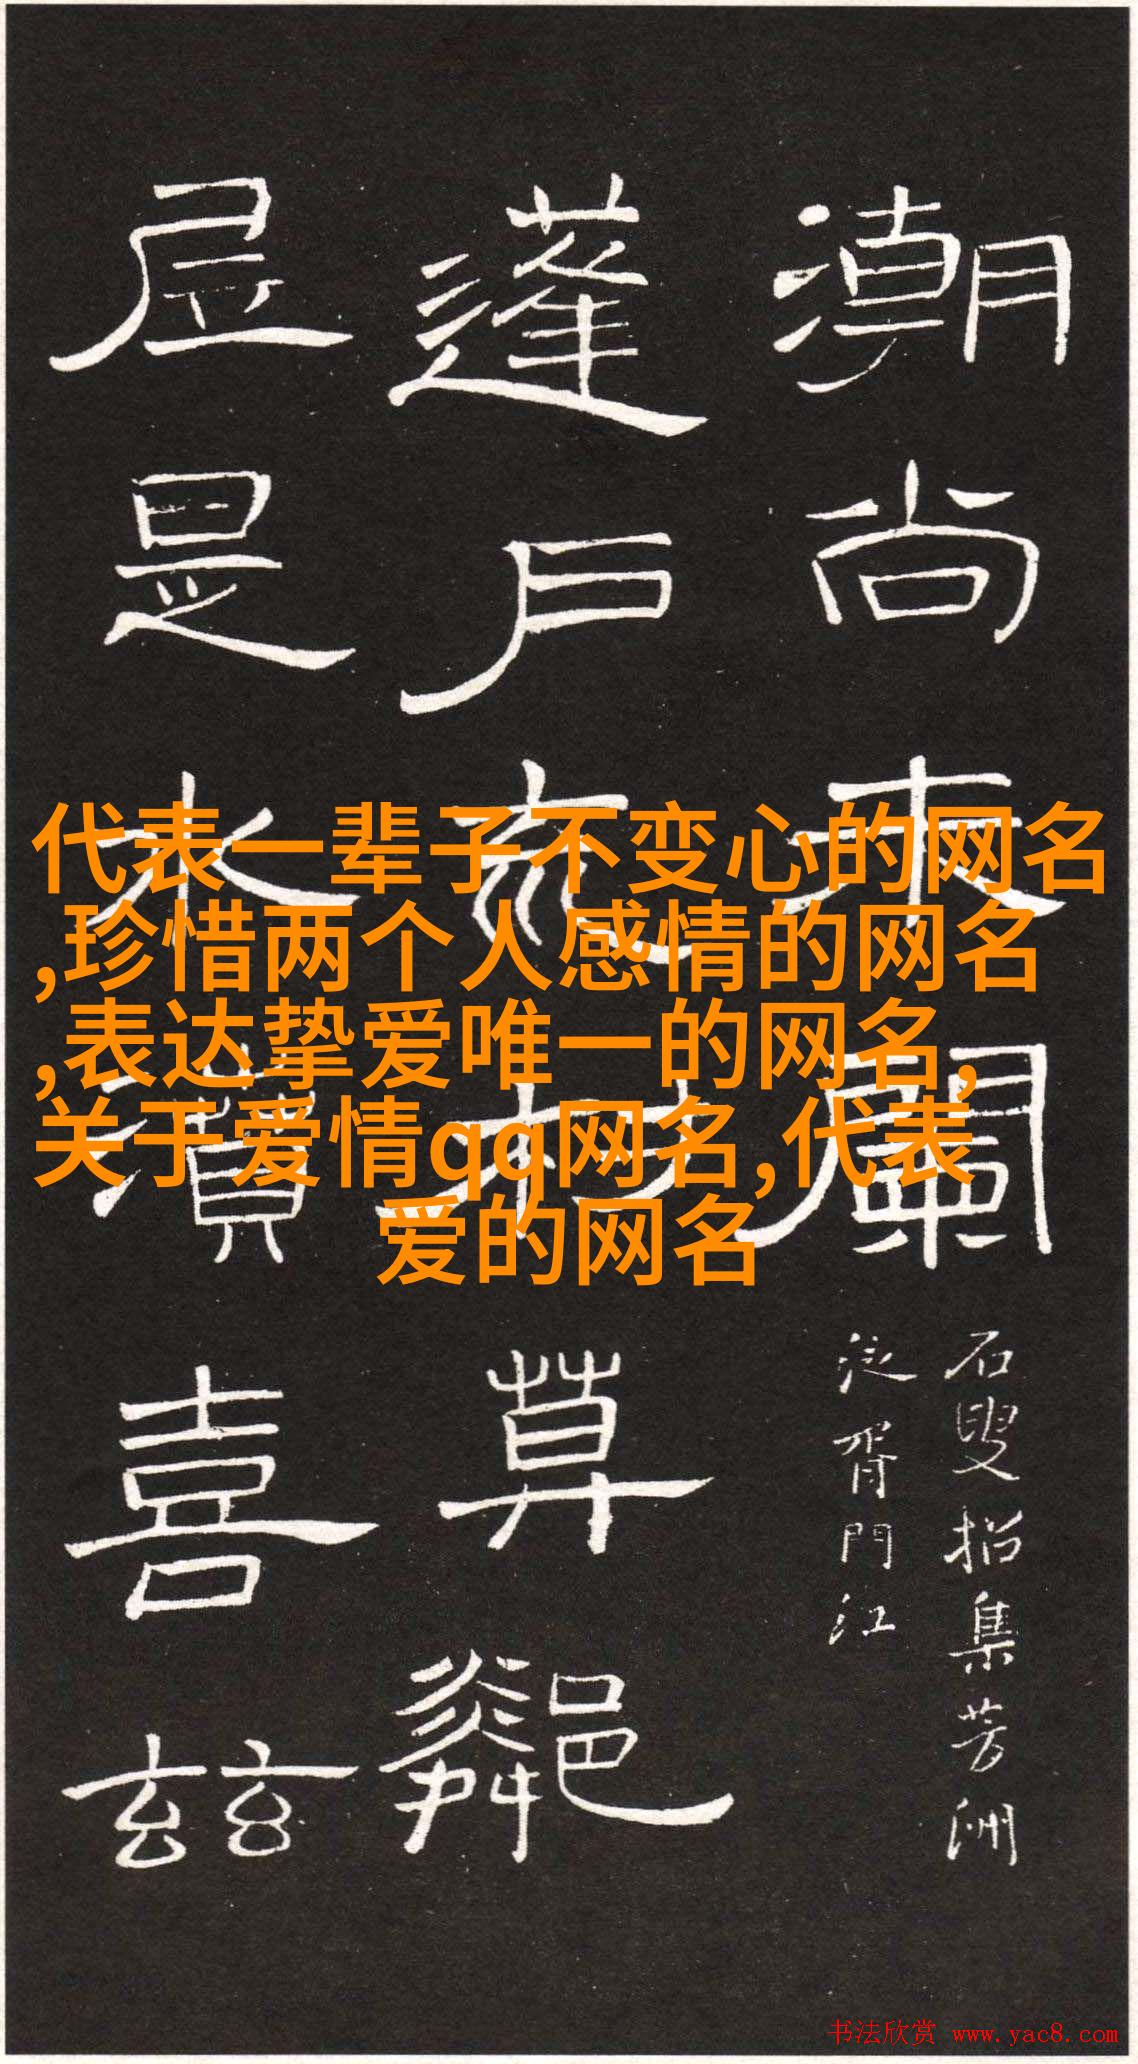 代表一辈子不变心的网名
,珍惜两个人感情的网名
,表达挚爱唯一的网名,
关于爱情qq网名,代表
爱的网名
潮尚来
石叟招集芳洲
泛胥門江
蓬戶草
是水喜玆
书法欣赏 www.yac8.com